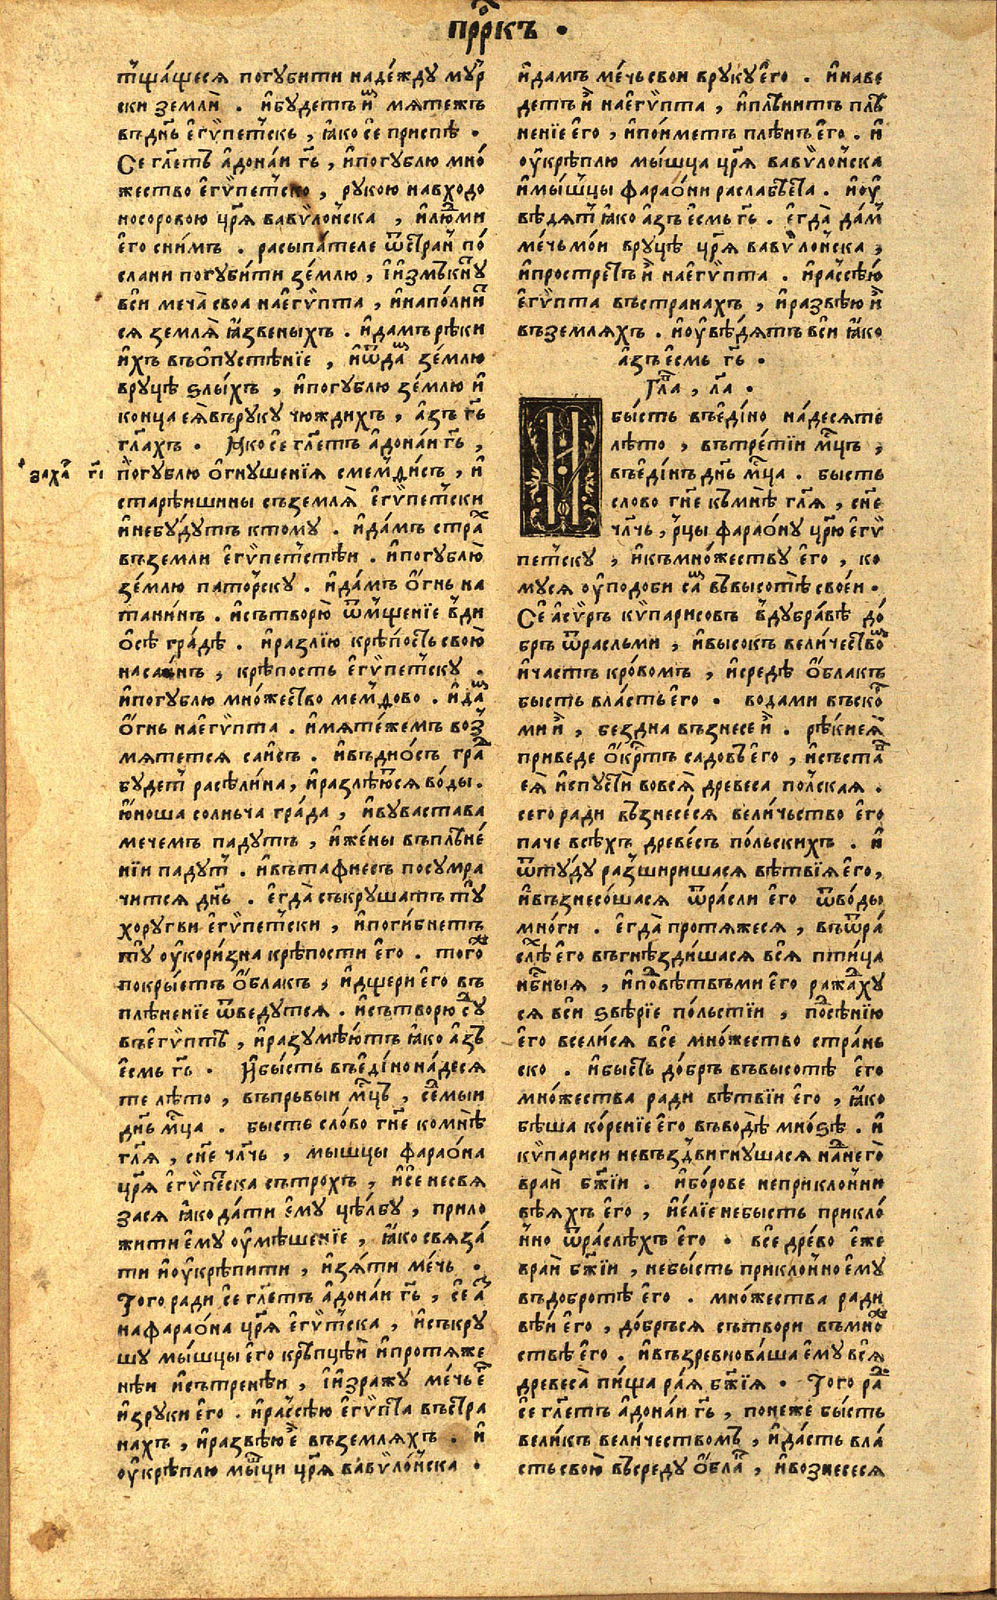 прⷪ҇ркъ ·
тщащеся погубити надежду мур
ски земли . и҆будетъ и҆ мятежъ
въдн҃ь е҆гѵпетскъ , ꙗ҆ко се приспѣ ·
Се гл҃етъ а҆донаи гь҃ , и҆погублю мно
жество е҆гѵпетско , рукою навходо
носоровою цр҃я вавѵлонска , и҆людми
его снимъ . расыпателе ѿстран по
слани погубити землю , и҆измъкнꙋ
вси меча своа наегѵпта , и҆наполнит
ся земля ꙗ҆звеныхъ . и҆дамъ рѣки
ихъ въопустѣнїе , и҆ѿдам землю
вруцѣ ѕлыхъ , и҆погублю землю и҆
конца еѧ въруку чюждихъ , а҆зъ гь҃
гл҃ахъ · Ꙗ҆ко се гл҃етъ а҆донаи гь҃ ,
захар гі
погублю о҆гнушенїя ѿ мемдисъ , и҆
старѣишины съземля е҆гѵпетски
и҆небудутъ ктому . и҆дамъ страх
въземли е҆гѵпетстѣи . и҆погублю
землю паторску . и҆дамъ о҆гнь на
танинъ . и҆сътворю ѿмщенїе вди
о҆сѣ градѣ . и҆разлїю крѣпость свою
насаинъ , крѣпость е҆гѵпетску .
и҆погублю множество мемдово . и҆дам
о҆гнь наегѵпта . и҆мятежемъ воз
мятется саисъ . и҆въдиосъ град
будет расѣлина , и҆разлѣются воды .
ю҆ноша солньча града , и҆вувастава
мечемъ падутъ , и҆жены въплѣне
нїи падут . и҆вътафнесъ посумра
чится дн҃ь . е҆гда съкрушатъ тꙋ
хоругви е҆гѵпетски , и҆погибнетъ
тꙋ оу҆коризна крѣпости его . того
покрыетъ о҆блакъ , и҆дщери его въ
плѣненїе ѿведутся . и҆сътворю сꙋд
въегѵптѣ , и҆разумѣютъ ꙗ҆ко а҆зъ
е҆смь гь҃ · И҆бысть въедіно надеся
те лѣто , въпрьвыи мц҃ъ , семыи
дн҃ь мц҃а . бысть слово гн҃е комнѣ
гл҃я , сн҃е чл҃чь , мышцы фараона
цр҃я е҆гѵпеска сътрохъ , и҆се несвя
зася ꙗ҆ко дати ему цѣлбу , прило
жити ему оу҆мѣшенїе , ꙗ҆ко связа
ти и҆оукрѣпити , и҆зяти мечь .
Того ради се гл҃етъ а҆донаи гь҃ , се аз
нафараона цр҃я е҆гѵпетска , и҆съкру
шу мышцы его крѣпцѣи и҆протяже
нѣи и҆сътренѣи , и҆изражу мечь е҆го
и҆зруки его . и҆рассѣю е҆гѵпта въстра
нахъ , и҆развѣю е҆ въземляхъ . и҆
оу҆крѣплю мышци цр҃я вавѵлонска .
и҆дамъ мечь свои вруку его . и҆наве
детъ и҆ наегѵпта , и҆плѣнитъ плѣ
ненїе его , и҆поиметъ плѣнъ его . и҆
оу҆крѣплю мышца цр҃я вавѵлонска
и҆мышцы фараони раслабѣета . и҆оу
вѣдят ꙗ҆ко а҆зъ е҆смь гь҃ . е҆гда дам
мечь мои вруцѣ цр҃я вавѵлонска ,
и҆прострет и҆ наегѵпта . и҆рассѣю
е҆гѵпта въстранахъ , и҆развѣю и҆
въземляхъ . и҆оувѣдятъ вси ꙗ҆ко
а҆зъ е҆смь гь҃ .
Гла , ла҃ .
И҆бысть въедіно надесяте
лѣто , вътретїи мц҃ъ ,
въединъ дн҃ь мц҃а . бысть
слово гн҃е къмнѣ гл҃я , сн҃е
чл҃чь , рцы фараону цр҃ю е҆гѵ
петску , и҆къмножеству его , ко
муся оу҆подоби сам въвысотѣ своеи .
Се а҆суръ кѵпарисовъ вдубравѣ до
бръ ѿрасльми , и҆высокъ величеством
и҆частъ кровомъ , и҆средѣ о҆блакъ
бысть власть его . водами въско
ми и҆ , бездна възнесе и҆ . рѣки ея
приведе о҆крстъ садовъ его , и҆съста
ея и҆спусти вовся древеса полская .
сего ради възнесеся величьство его
паче всѣхъ древесъ польскихъ . и҆
ѿтуду разширишася вѣтвїя его ,
и҆възнесошася ѿрасли его ѿводы
многи . е҆гда протяжеся , въѿра
слѣх его въгнѣздишася вся птица
нб҃ныя , и҆подвѣтвьми его ражаху
ся вси ѕвѣрїе польстїи , подсѣнїю
его вселися все множество страньско . и҆бысть добръ въвысотѣ его
множества ради вѣтвїи его , ꙗ҆ко
бѣша коренїе его въводѣ мноѕѣ . и҆
кѵпариси невъздвигнушася нанего
враи бж҃їи . и҆борове неприклонни
вѣяхъ его , и҆елїе небысть прикло
нно ѿраслѣхъ его . все древо еже
враи бж҃їи , небысть приклонно ему
въдобротѣ его . множества ради
вѣи его , добръся сътвори въмно
ствѣ его . и҆възревноваша ему вся
древеса пища рая бж҃їя . Того рад
се гл҃етъ а҆донаи гь҃ , понеже бысть
великъ величествомъ , и҆дасть вла
сть свою въсреду о҆блак , и҆вознесеся